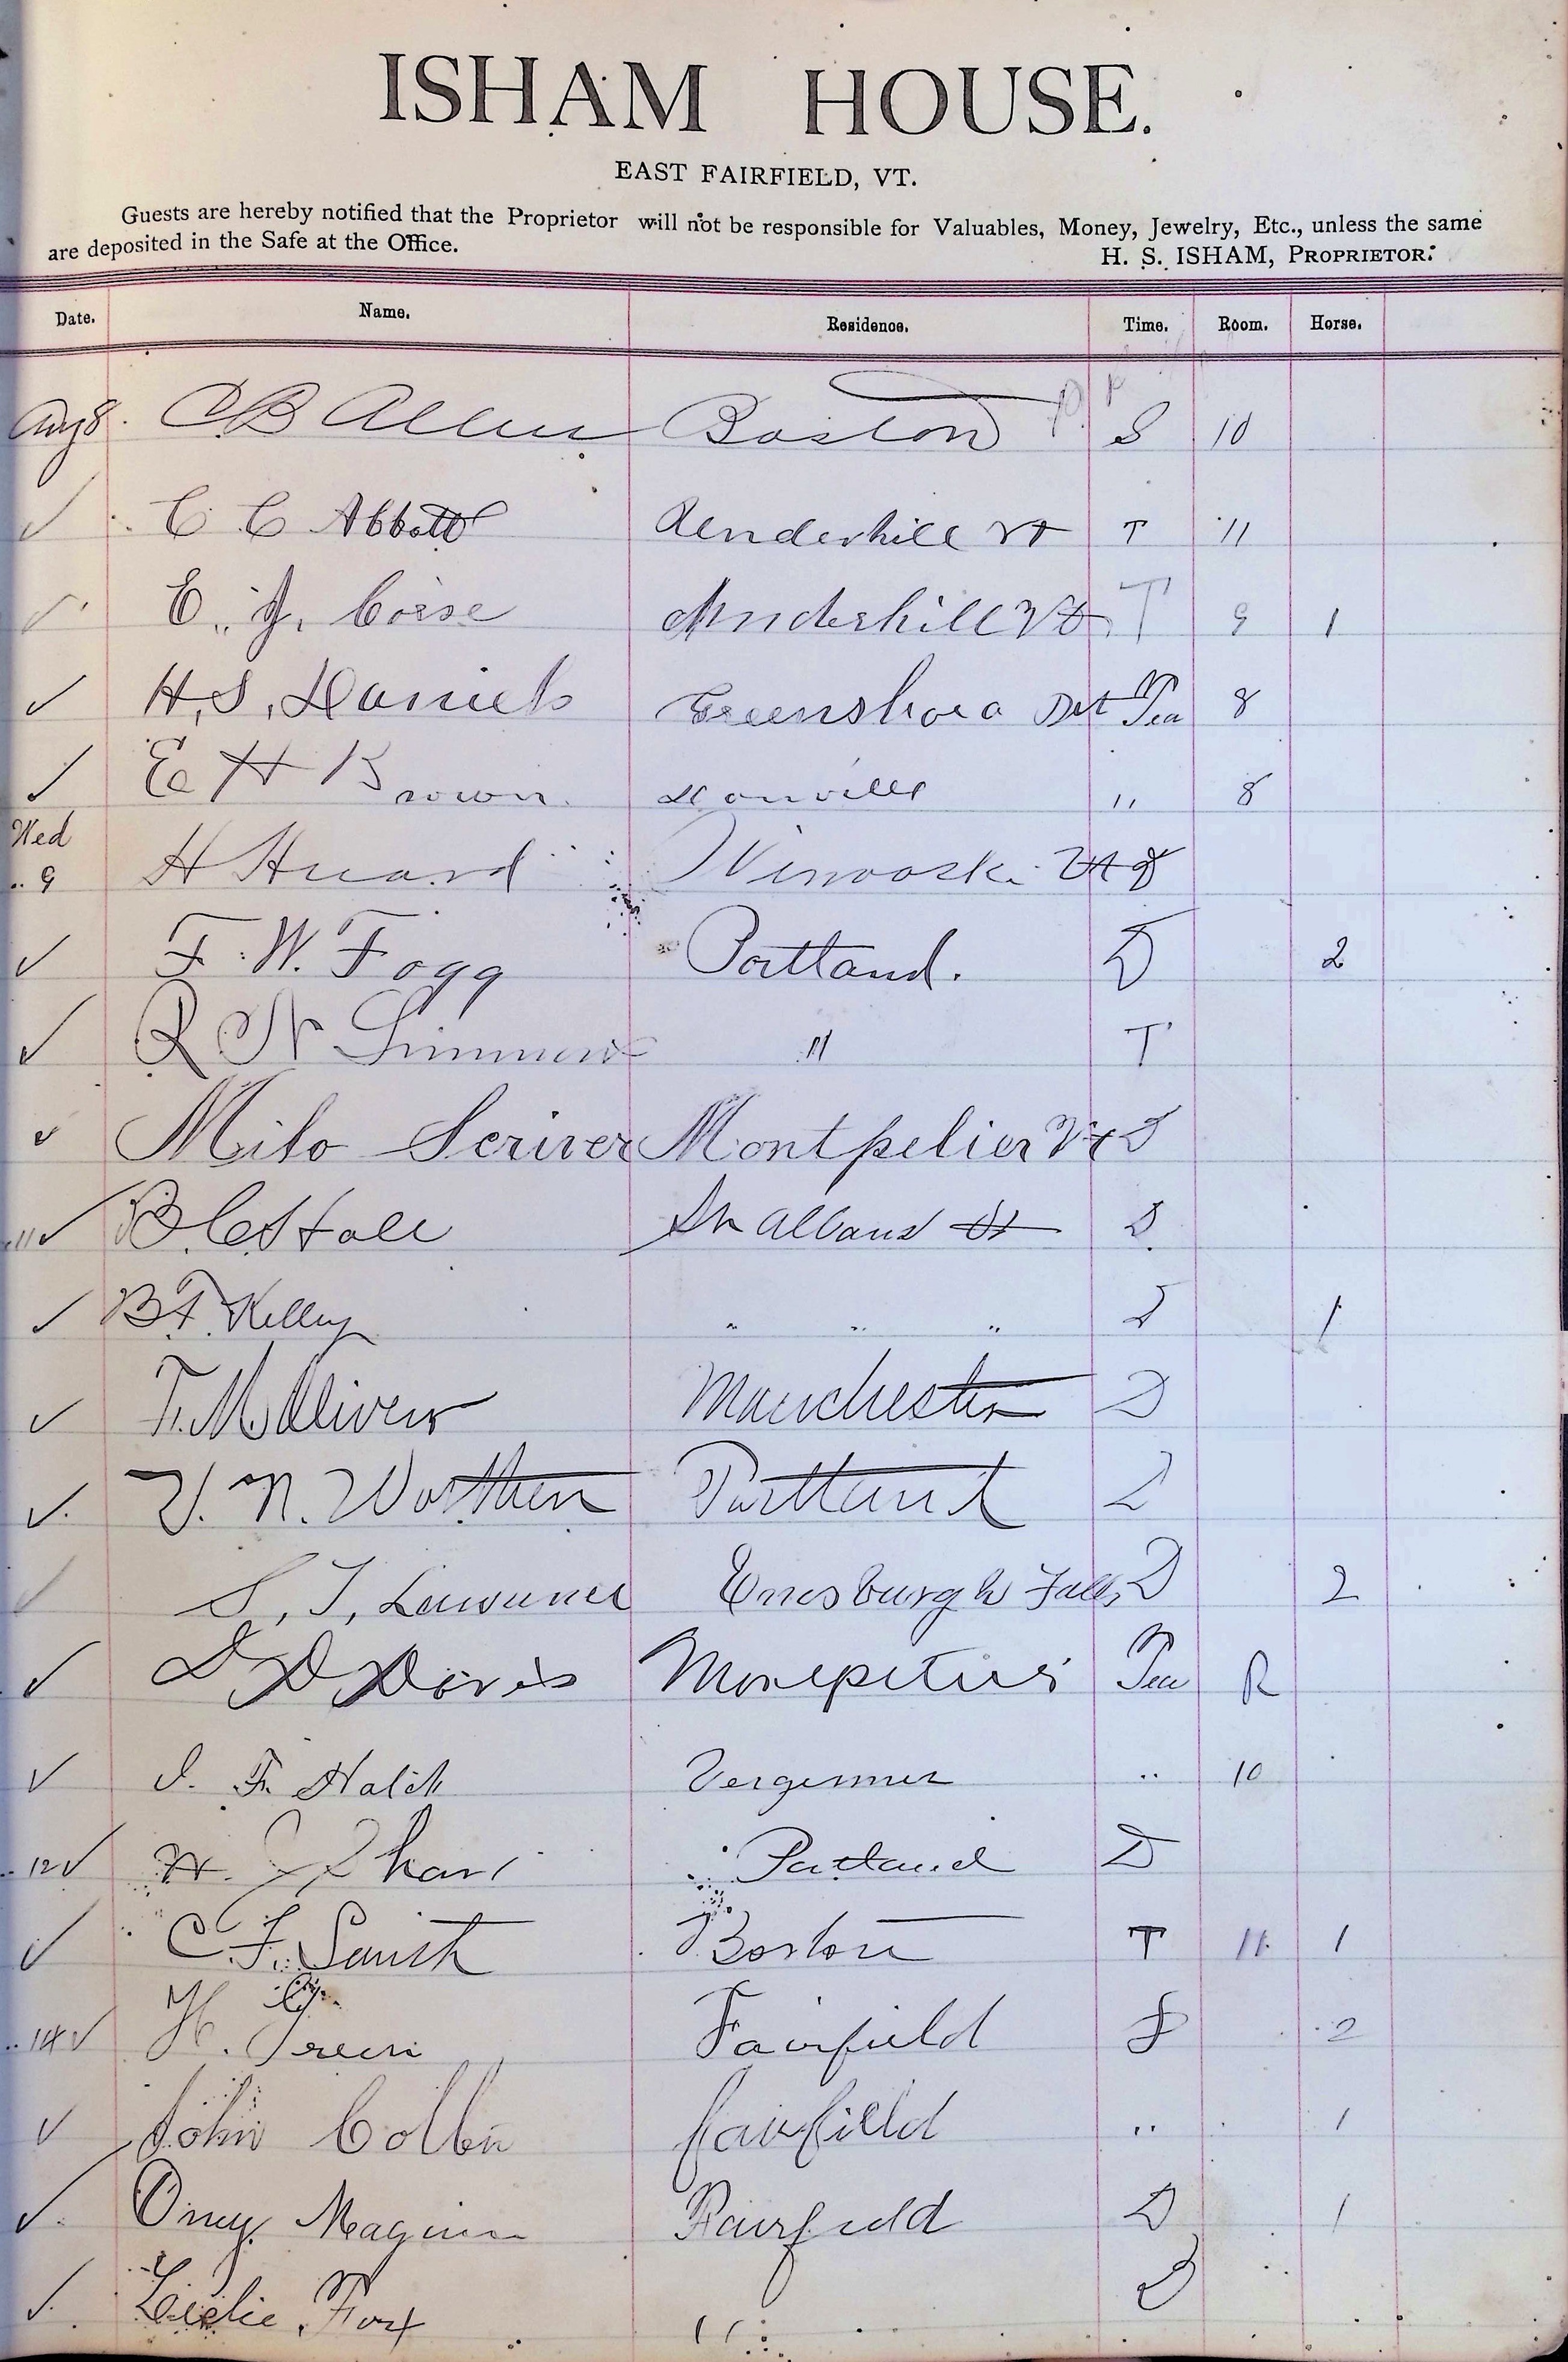 ISHAM HOUSE.
EAST FAIRFIELD, VT.
Guests are hereby notified that the Proprietor will not be responsible for Valuables, Money, Jewelry, Etc., unless the same
are deposited in the Safe at the Office.
H. S. ISHAM, PROPRIETOR.
Date. Name. Residence. Time. Room. Horse.
Aug 8 C B Allen Boston S 10
✓ C C Abbott Underhill Vt T 11
✓ E. J. Corse Underhill Vt T 9 1
✓ H. S. Daniels Greensboro Tea 8
✓ E H Brown " 8
Wed
.. 9 H Huard Winooski Vt
✓ F. W. Fogg Portland. D 2
✓ R N Simmons " T
✓ Milo Scriver Montpelier Vt D
.. 11 ✓ B C Hall St Albans Vt D
✓ B. F. Kelley " " " D 1
✓ F. M. Oliver Manchester D
✓ V. N. Worthen Portland D
✓ S. T. Lawrence Enosburgh Falls D 2
✓ D D Davis Montpelier Tea R
✓ J. F. Hatch Vergennes .. 10
.. 12 ✓ H. Portland D
✓ C. F. Smith Boston T 11 1
.. 14 ✓ H. Green Fairfield 2
✓ John Fairfield .. 1
✓ Maginn Fairfield D 1
✓ Leslie Fox " D